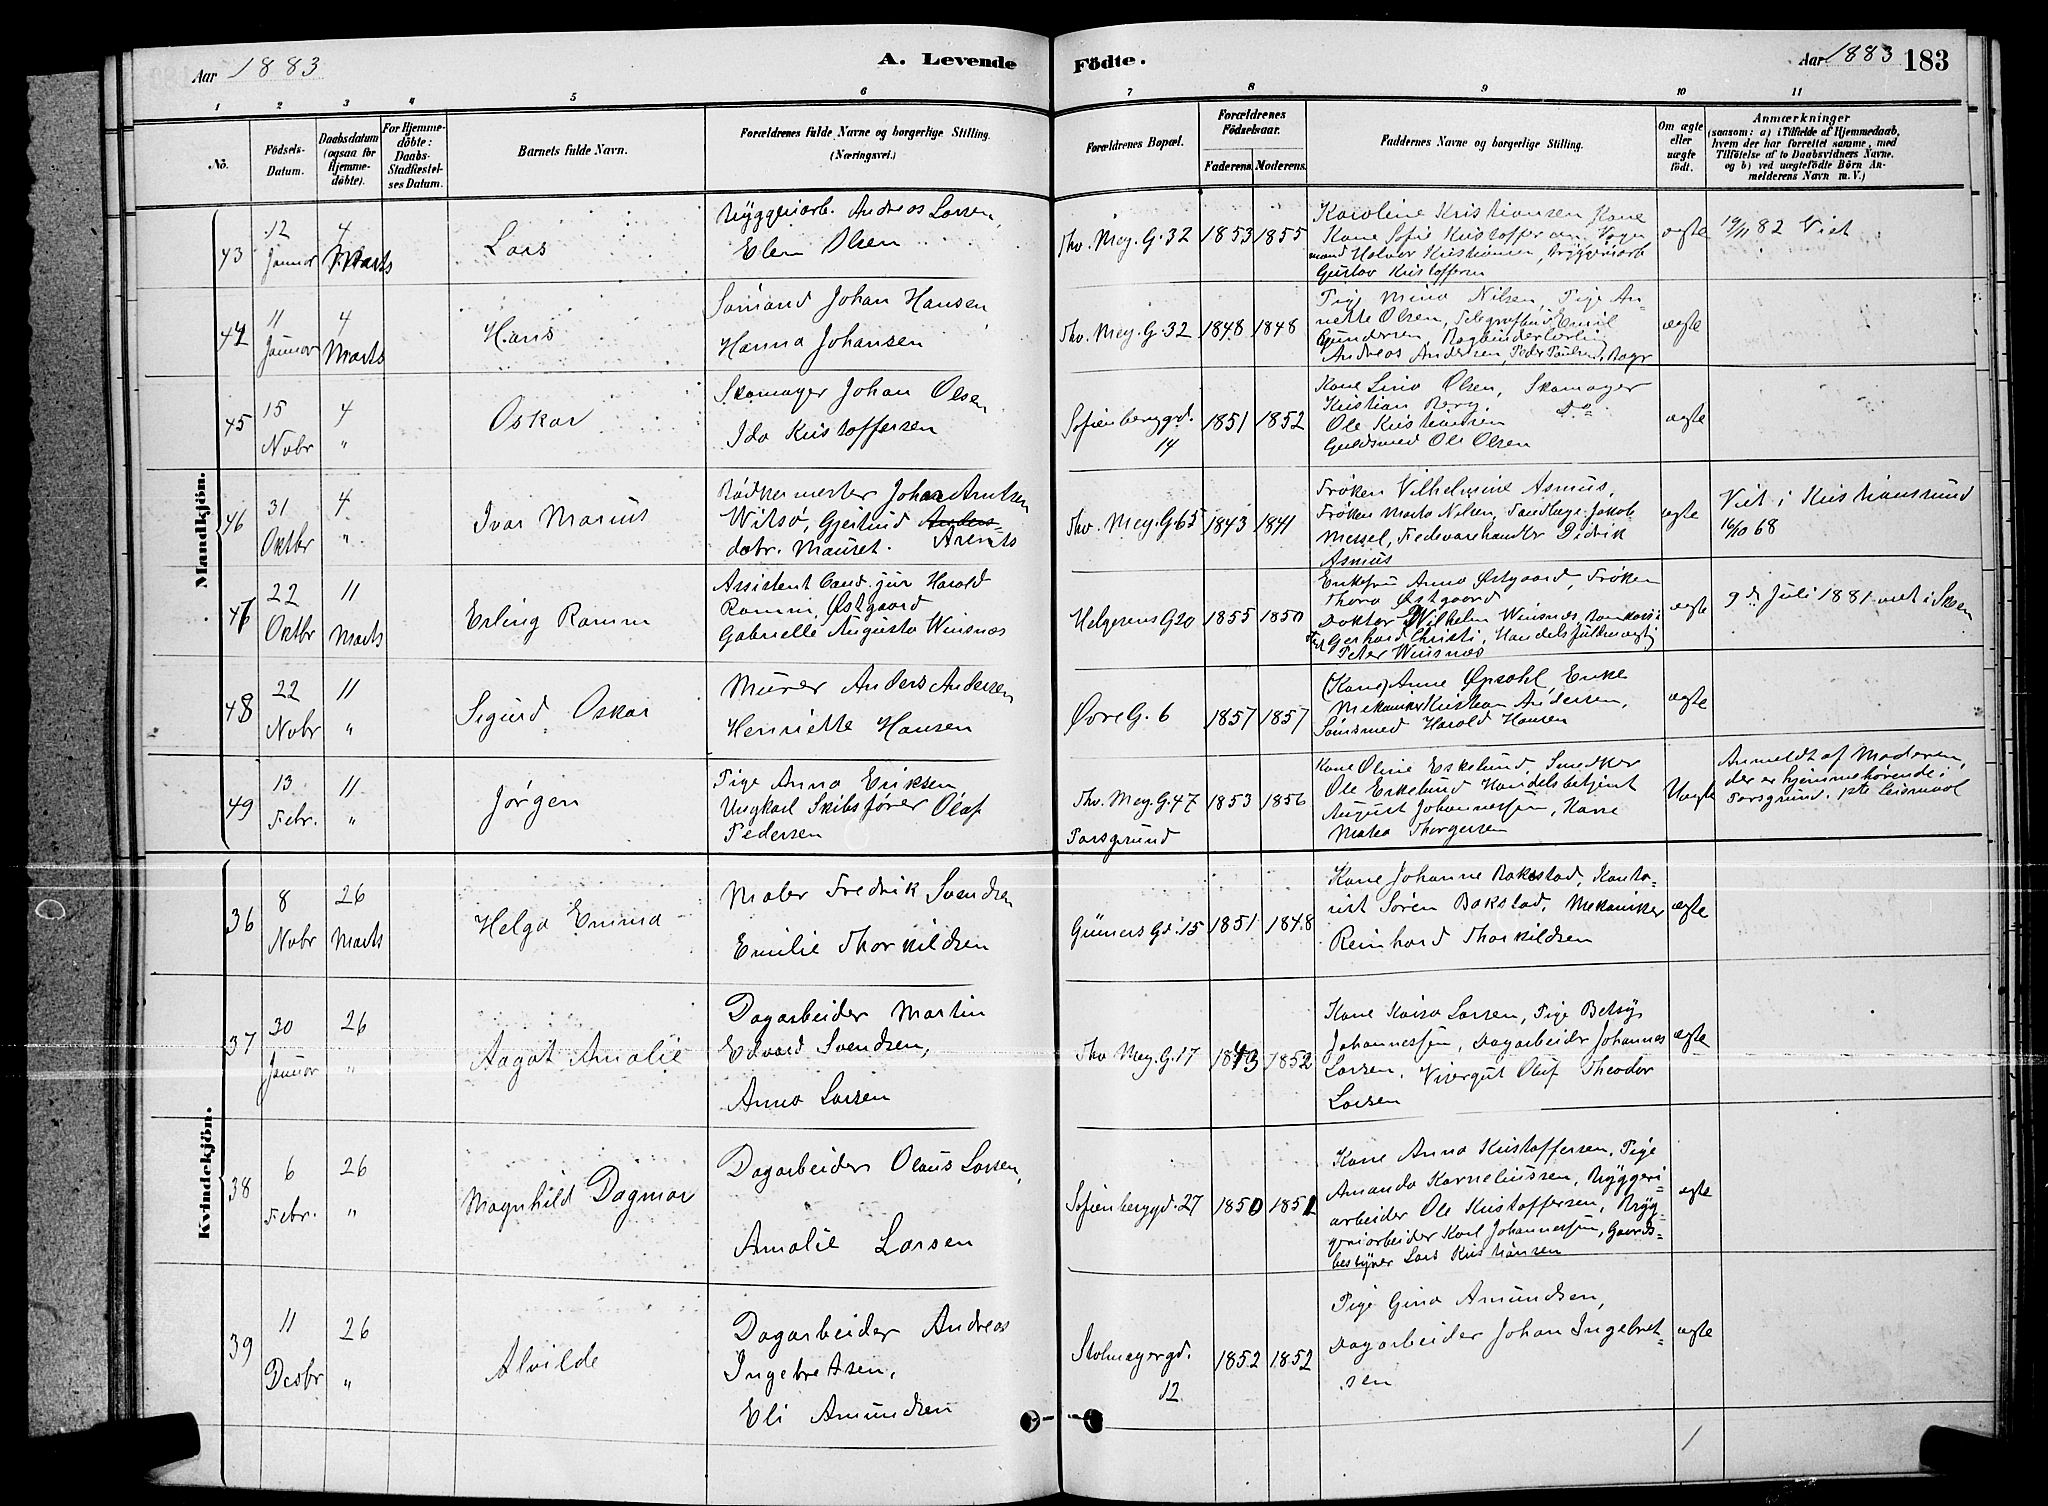 Aar 1883
A. Levende
Födte.
Aar 1883
183
1 2 3 4 5 6 7 8 9 10 11
No.
Födsels-
Datum.
Daabsdatum
(ogsaa for
Hjemme-
döbte).
For Hjemme-
döbte:
Daabs-
Stadfæstel-
ses Datum.
Barnets fulde Navn.
Forældrenes fulde Navne og borgerlige Stilling.
(Næringsvei.)
Forældrenes Bopæl.
Forældrenes
Födselsaar.
Faderens. Moderens.
Faddernes Navne og borgerlige Stilling.
Om ægte
eller
uægte
födt.
Anmærkninger
(saasom: a) i Tilfælde af Hjemmedaab,
hvem der har forrettet samme, med
Tilföielse af to Daabsvidners Navne.
og b) ved uægtefödte Börn An-
melderens Navn m. V.)
Mandkjön.
43
12
Januar
4
Marts
Lars
Bryggeriarb. Andreas Larsen,
Elen Olsen
Thv. Mey. G. 32
1853
1855
Karoline Kristiansen Kone
Kone Sofie Kristoffersen, Vogn
mand Halvor Kristiansen, Bryggeriarb
Gustav Kristoffersen
ægte
19/11 82 Viet
44
11
Januar
4
Marts
Hans
Sømand Johan Hansen,
Hanna Johansen
Thv. Mey. G. 32
1848
1848
Pige Mina Nilsen, Pige An-
nette Olsen, Telegrafbud Emil
Gundersen, Bogbinderlærling
Andreas Andersen, Peder Paulsen, Bager
ægte
45
15
Novbr
4
"
Oskar
Skomager Johan Olsen
Ida Kristoffersen
Sofienberggd.
14
1851
1852
Kone Lina Olsen, Skomager
Kristian Berg,
Ole Kristiansen Do
Guldsmed Ole Olsen
ægte
46
31
Oktbr
4
"
Ivar Marius
Bødkermester Johan Arntsen
Witsø, Gjertrud Anders-
datr. Mauset. Arents
Thv. Mey. G. 65
1843
1841
Frøken Vilhelmine Asmus,
Frøken Marta Nilsen, Tandlæge Jakob
Messel, Fedevarehandler Didrik
Asmus
ægte
Viet i Kristiansund
16/10 68
47
22
Oktbr
11
Marts
Erling Ramm
Assistent Cand. jur Harald
Ramm, Østgaard
Gabrielle Augusta Winsnæs
Helgesens G 20
1855
1850
Enkefru Anna Østgaard, Frøken
Thora Østgaard
Doktor Wilhelm Winsnæs
Gerhard Christi, Handelsfuldmægtig
Peter Winsnæs
ægte
9de Juli 1881 viet i Skien
48
22
Novbr
11
"
Sigurd Oskar
Murer Anders Andersen
Henriette Hansen
Øvre G. 6
1857
1857
(Kone) Anne Opsahl, Enke
Mekaniker Kristian Andersen,
Harald Hansen
ægte
49
13
Febr.
11
"
Jørgen
Pige Anna Eriksen
Ungkarl Skibsfører Olaf
Pedersen
Thv. Mey. G. 47
Porsgrund
1853
1856
Kone Oline Eskelund, Snedker
Ole Eskelund Handelsbetjent
August Johannessen, Kone
Matea Thorgersen
Uægte
Anmeldt af Moderen,
der er hjemmehørende i
Porsgrund.
Kvindekjön.
36
8
Novbr
26
Marts
Helga Emma
Maler Fredrik Svendsen
Emilie Thorkildsen
Gunners Gd. 15
1851
1848
Kone Johanne Bakstad, Konto-
rist Søren Bakstad, Mekaniker
Reinhard Thorkildsen
ægte
37
30
Januar
26
"
Aagot Amalie
Dagarbeider Martin
Edvard Svendsen,
Anna Larsen
Thv Mey. G. 17
1843
1852
Kone Kaisa Larsen, Pige Betsy
Johannessen, Dagarbeider Johannes
Larsen, Visergut Oluf Theodor
Larsen
ægte
38
6
Febr.
26
"
Magnhild Dagmar
Dagarbeider Olaus Larsen,
Amalie Larsen
Sofienberggd. 27
1850
1851
Kone Anna Kristoffersen, Pige
Amanda Korneliussen, Bryggeri-
arbeider Ole Kristoffersen, Bryg-
geriarbeider Karl Johannessen, Gaards-
bestyrer Lars Kristiansen
ægte
39
11
Desbr
26
"
Alvilde
Dagarbeider Andreas
Ingebretsen,
Eli Amundsen
Stolmagergd.
12
1852
1852
Pige Gina Amundsen,
Dagarbeider Johan Ingebret-
sen
ægte